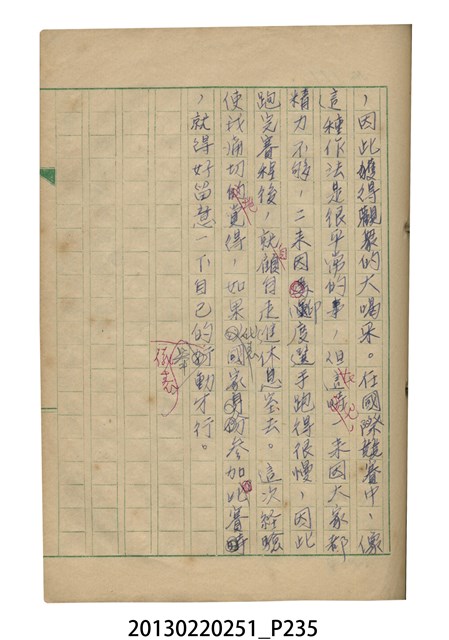 ，因此獲得觀眾的大喝采。在國際競賽中，像
這種作法是很平常的事，但這時一來因大家都
精力不夠，二來因印度選手跑得很慢，因此
跑完賽程後，就顧自走進休息室去。這次經驗
使我痛切地覺得，如果代表國家參加比賽時
，就得好留慧一下自己的行動才行。
20130220251_P235